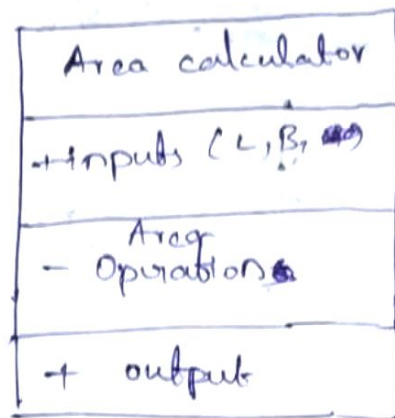 Area calculator
+inputs (L, B,
Area
- Operation
+ output